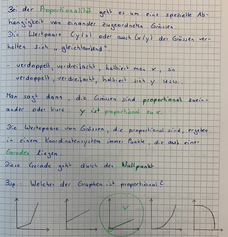 Bei der Proportionalität geht es um eine spezielle Ab-
hängigkeit von einander zugeordneten Grössen.
Die Wertepaare (x/y) oder auch (x|y) der Grössen ver-
halten sich „gleichbleibend".
- verdoppelt, verdreifacht, halbiert man x, so
verdoppelt, verdreifacht, halbiert sich y usw.
Man sagt dann, die Grössen sind proportional zuein-
ander oder kurz y ist proportional zu x.
Die Wertepaare von Grössen, die proportional sind, ergeben
in einem Koordinatensystem immer Punkte, die auf einer
Geraden liegen.
Diese Gerade geht durch den Nullpunkt
Bsp: Welcher der Graphen ist proportional?